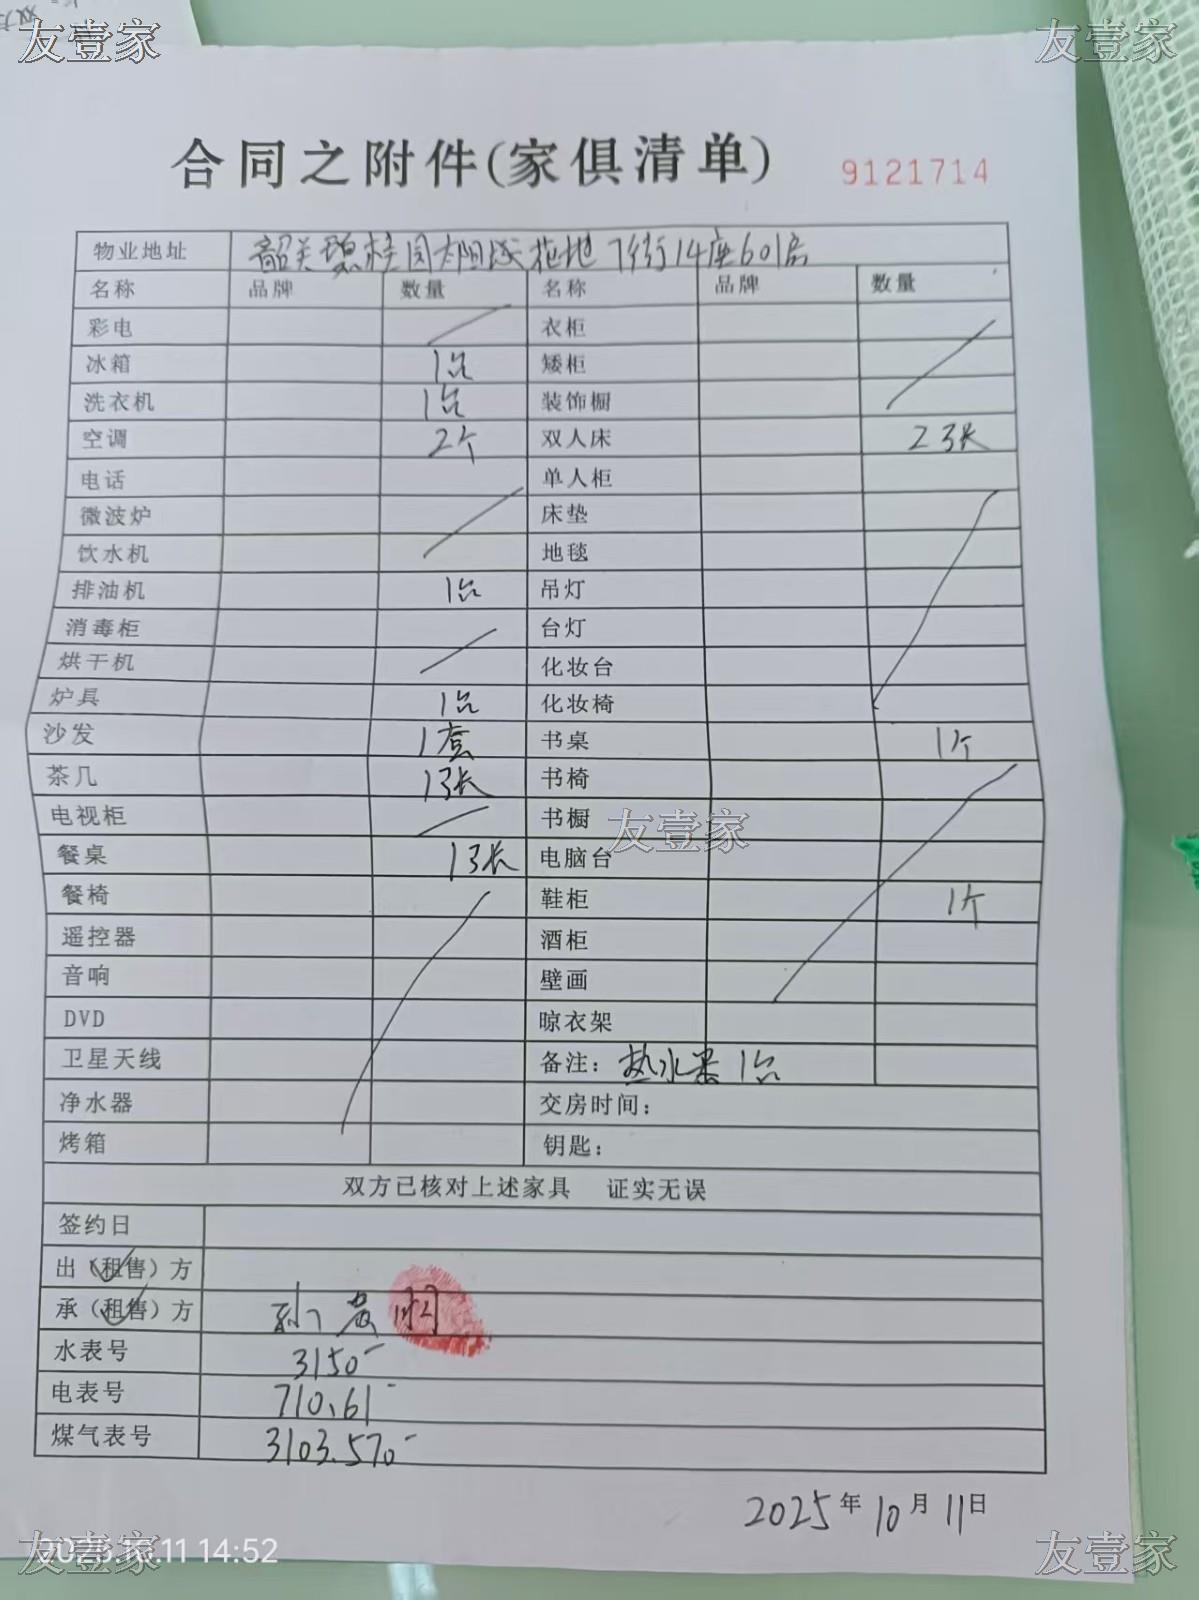 友壹家 友壹家
合同之附件(家俱清单) 9121714
物业地址 韶关碧桂园太阳城花地7街14座601房
名称 品牌 数量 名称 品牌 数量
彩电 衣柜
冰箱 1台 矮柜
洗衣机 1台 装饰橱
空调 2个 双人床 2张
电话 单人柜
微波炉 床垫
饮水机 地毯
排油机 1台 吊灯
消毒柜 台灯
烘干机 化妆台
炉具 1台 化妆椅
沙发 1套 书桌 1个
茶几 1张 书椅
电视柜 书橱
友壹家
餐桌 1张 电脑台
餐椅 鞋柜 1个
遥控器 酒柜
音响 壁画
DVD 晾衣架
卫星天线 备注：热水器1台
净水器 交房时间：
烤箱 钥匙：
双方已核对上述家具 证实无误
签约日
出（租售）方
承（租售）方
水表号 3150
电表号 710.61
煤气表号 3103.570
2025年10月11日
2025.10.11 14:52
友壹家 友壹家